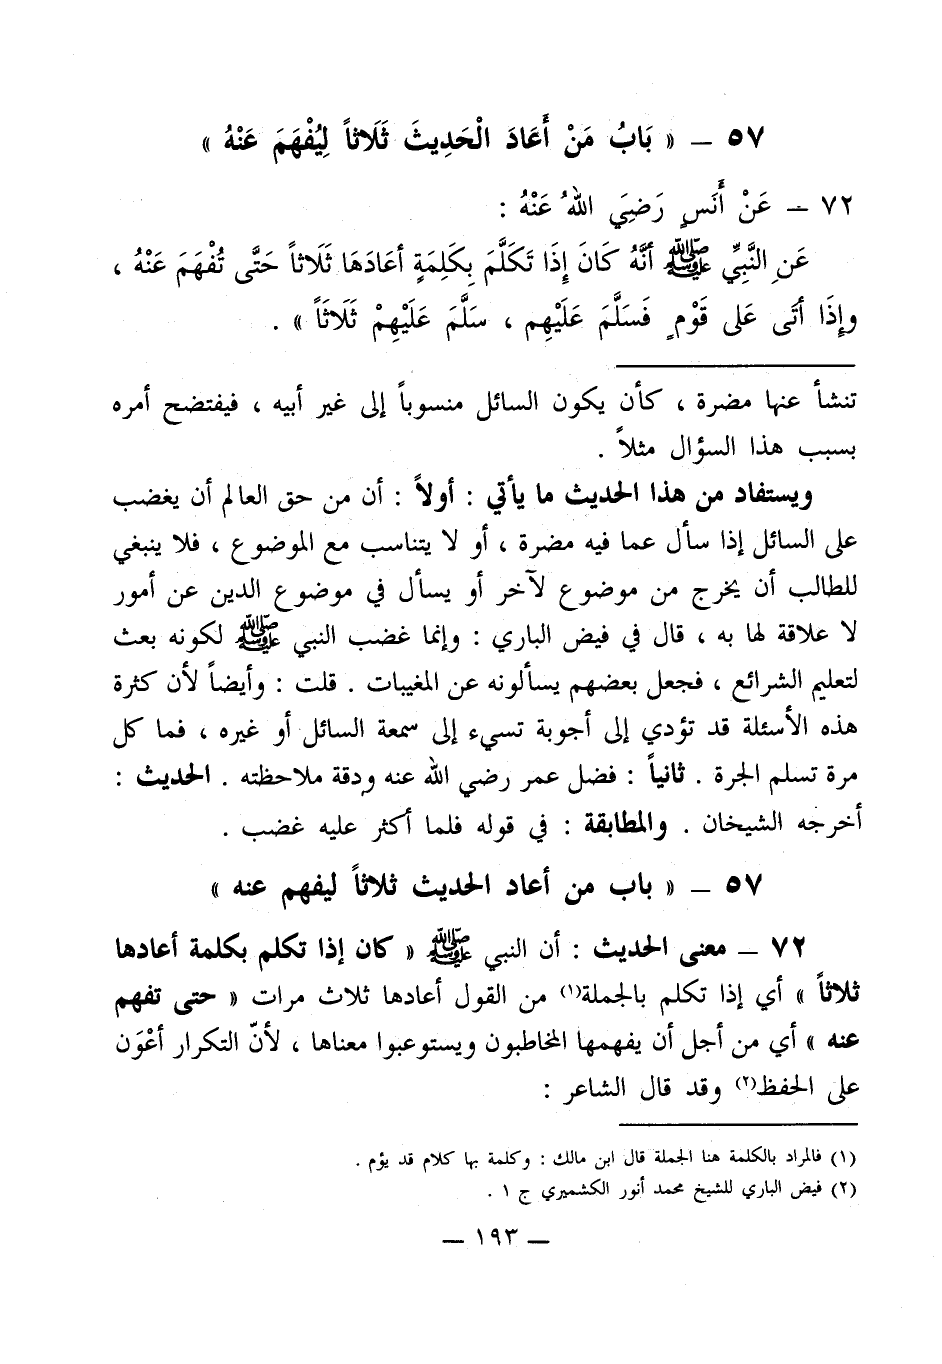 ٥٧ ــ « بَابُ مَنْ أَعَادَ الْحَدِيثَ ثَلَاثاً لِيُفْهَمَ عَنْهُ »
٧٢ ــ عَنْ أَنَسٍ رَضِيَ اللهُ عَنْهُ :
عَنِ النَّبِيِّ ﷺ أنَّهُ كَانَ إِذَا تَكَلَّمَ بِكَلِمَةٍ أعَادَهَا ثَلَاثاً حَتَّى تُفْهَمَ عَنْهُ ،
وإِذَا أتَى عَلى قَوْمٍ فَسَلَّمَ عَلَيْهِم ، سَلَّمَ عَلَيْهِمْ ثَلَاثَاً » .
تنشأ عنها مضرة ، كأن يكون السائل منسوباً إلى غير أبيه ، فيفتضح أمره
بسبب هذا السؤال مثلاً .
ويستفاد من هذا الحديث ما يأتي : أولاً : أن من حق العالم أن يغضب
على السائل إذا سأل عما فيه مضرة ، أو لا يتناسب مع الموضوع ، فلا ينبغي
للطالب أن يخرج من موضوع لآخر أو يسأل في موضوع الدين عن أمور
لا علاقة لها به ، قال في فيض الباري : وإنما غضب النبي ﷺ لكونه بعث
لتعليم الشرائع ، فجعل بعضهم يسألونه عن المغيبات . قلت : وأيضاً لأن كثرة
هذه الأسئلة قد تؤدي إلى أجوبة تسيء إلى سمعة السائل أو غيره ، فما كل
مرة تسلم الجرة . ثانياً : فضل عمر رضي الله عنه ودقة ملاحظته . الحديث :
أخرجه الشيخان . والمطابقة : في قوله فلما أكثر عليه غضب .
٥٧ ــ « باب من أعاد الحديث ثلاثاً ليفهم عنه »
٧٢ ــ معنى الحديث : أن النبي ﷺ « كان إذا تكلم بكلمة أعادها
ثلاثاً » أي إذا تكلم بالجملة(١) من القول أعادها ثلاث مرات « حتى تفهم
عنه » أي من أجل أن يفهمها المخاطبون ويستوعبوا معناها ، لأنّ التكرار أعْوَن
على الحفظ(٢) وقد قال الشاعر :
(١) فالمراد بالكلمة هنا الجملة قال ابن مالك : وكلمة بها كلام قد يؤم .
(٢) فيض الباري للشيخ محمد أنور الكشميري ج ١ .
ــ ١٩٣ ــ